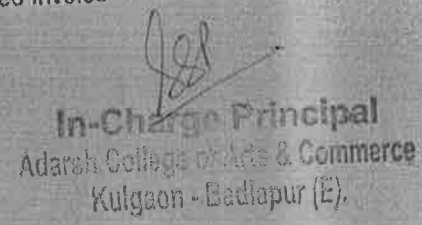 In-Charge Principal
Adarsh College of Arts & Commerce
Kulgaon - Badlapur (E).